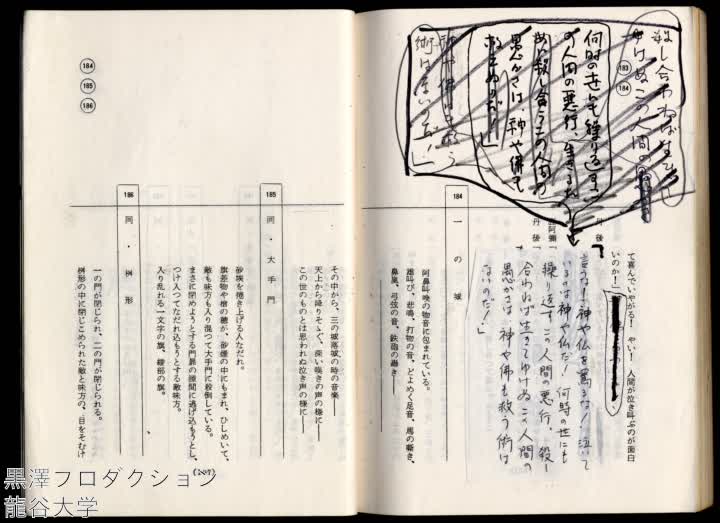 殺し合わねば生きて
ゆけぬこの人間の
183
184
何時の世にも繰り返す
の人間の悪行、生きるた
め殺し合うこの人間の
愚かさは、神や佛も
救えぬのだ!
神や佛も救う
術はないのだ!」
て喜んでいやがる! やい! 人間が泣き叫ぶのが面白
いのか!」
丹後「
言うな! 神や仏を罵るな! 泣いて
いるのは神や仏だ! 何時の世にも
繰り返すこの人間の悪行、殺し
合わねば生きてゆけぬこの人間の
愚かさは、神や佛も救う術は
ないのだ!」
阿彌「
丹後「
184 一の城
阿鼻叫喚の物音に包まれている。
雄叫び、悲鳴、打物の音、どよめく足音、馬の嘶き、
鼻嵐、弓弦の音、鉄砲の轟き――
その中から、三の城落城の時の音楽――
天上から降りそゝぐ、深い嘆きの声の様に――
この世のものとは思われぬ泣き声の様に――
185 同・大手門
砂塵を捲き上げる人なだれ。
旗差物や槍の穂が、砂煙の中にもまれ、ひしめいて、
敵も味方も入り混って大手門に殺到している。
まさに閉めようとする門扉の隙間に逃げ込もうとし、
つけ入ってなだれ込もうとする敵味方。
入り乱れる一文字の旗、綾部の旗。
186 同・桝形
一の門が閉じられ、二の門が閉じられる。
桝形の中に閉じこめられた敵と味方の、目をそむけ
184
185
186
黒澤プロダクション
龍谷大学